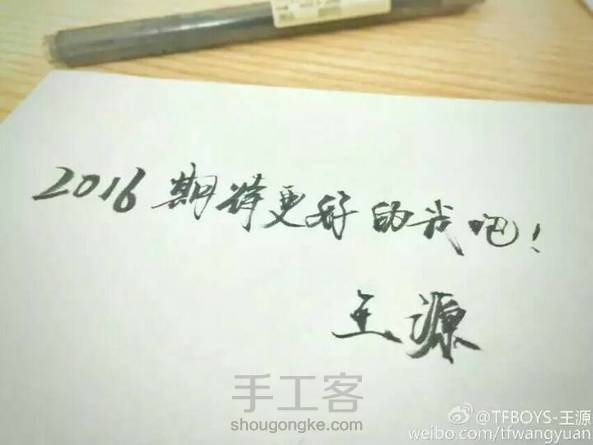 2016期待更好的我吧！
王源
手工客
shougongke.com
@TFBOYS-王源
weibo.com/tfwangyuan